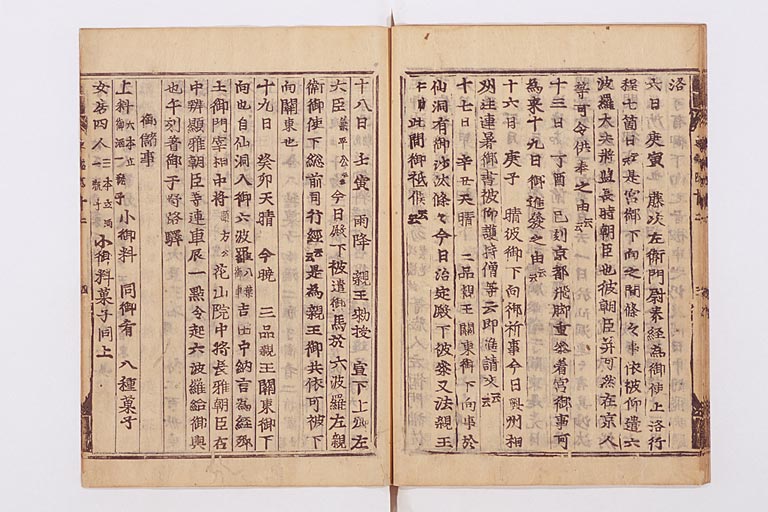 洛
六日 庚寅 藤次左衛門尉泰経為御使上洛行
程七箇日 是宮御下向之間條々事依被仰遣六
波羅大夫将監長時朝臣也彼朝臣并可然在京人
等可令供奉之由云云
十三日 丁酉 已剋京都飛脚重参着宮御事可
為来十九日御進發之由云云
十六日 庚子 晴彼御下向御祈事今日奥州相
州注連暑御書被仰護持僧等云云即進請文云云
十七日 辛丑 天晴 二品親王關東御下向事於
仙洞有御沙汰條々今日治定殿下被参又法親王
此間御祇候云云
十八日 壬寅 雨降 親王勅授 宣下上卿左
大臣兼平公云云今日殿下被遣御馬於六波羅左親
衛御使下総前司行經云云是為親王御共依可被下
向關東也
十九日 癸卯 天晴 今暁 三品親王關東御下
向也自仙洞入御六波羅八葉御車吉田中納言為經卿
土御門宰相中将顕方公花山院中将長雅朝臣在
中辨顯雅朝臣等連車辰一點令起六波羅給御輿
也午刻着御于野路驛
御儲事
上料六本立御酒一瓶子 小御料 同御肴 八種菓子
女房四人二本立肴一瓶子 小御料菓子同上